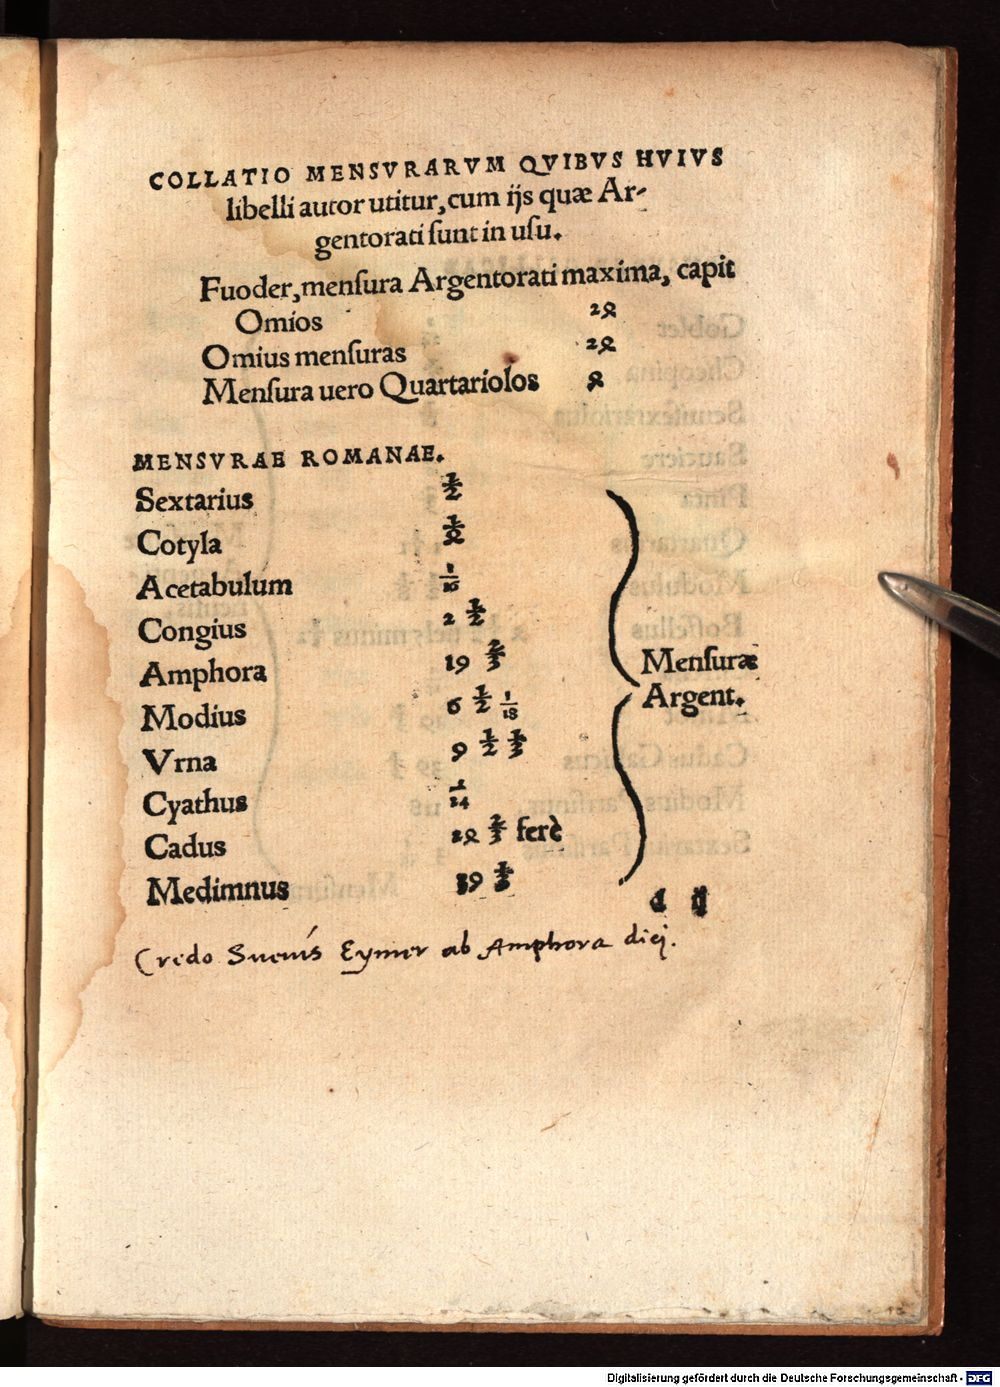 COLLATIO MENSVRARVM QVIBVS HVIVS
libelli autor utitur, cum ijs quæ Ar-
gentorati ſunt in uſu.
Fuoder, menſura Argentorati maxima, capit
Omios 24
Omius menſuras 24
Menſura uero Quartariolos 4
MENSVRAE ROMANAE.
Sextarius 1/2
Cotyla 1/4
Acetabulum 1/16
Congius 2 1/2
Amphora 19 2/3
Modius 6 1/2 1/18
Vrna 9 1/2 1/3
Cyathus 1/24
Cadus 24 2/3 ferè
Medimnus 39 1/3
Menſuræ
Argent.
d ij
Credo Sueuis Eymer ab Amphora dici.
Digitalisierung gefördert durch die Deutsche Forschungsgemeinschaft - DFG